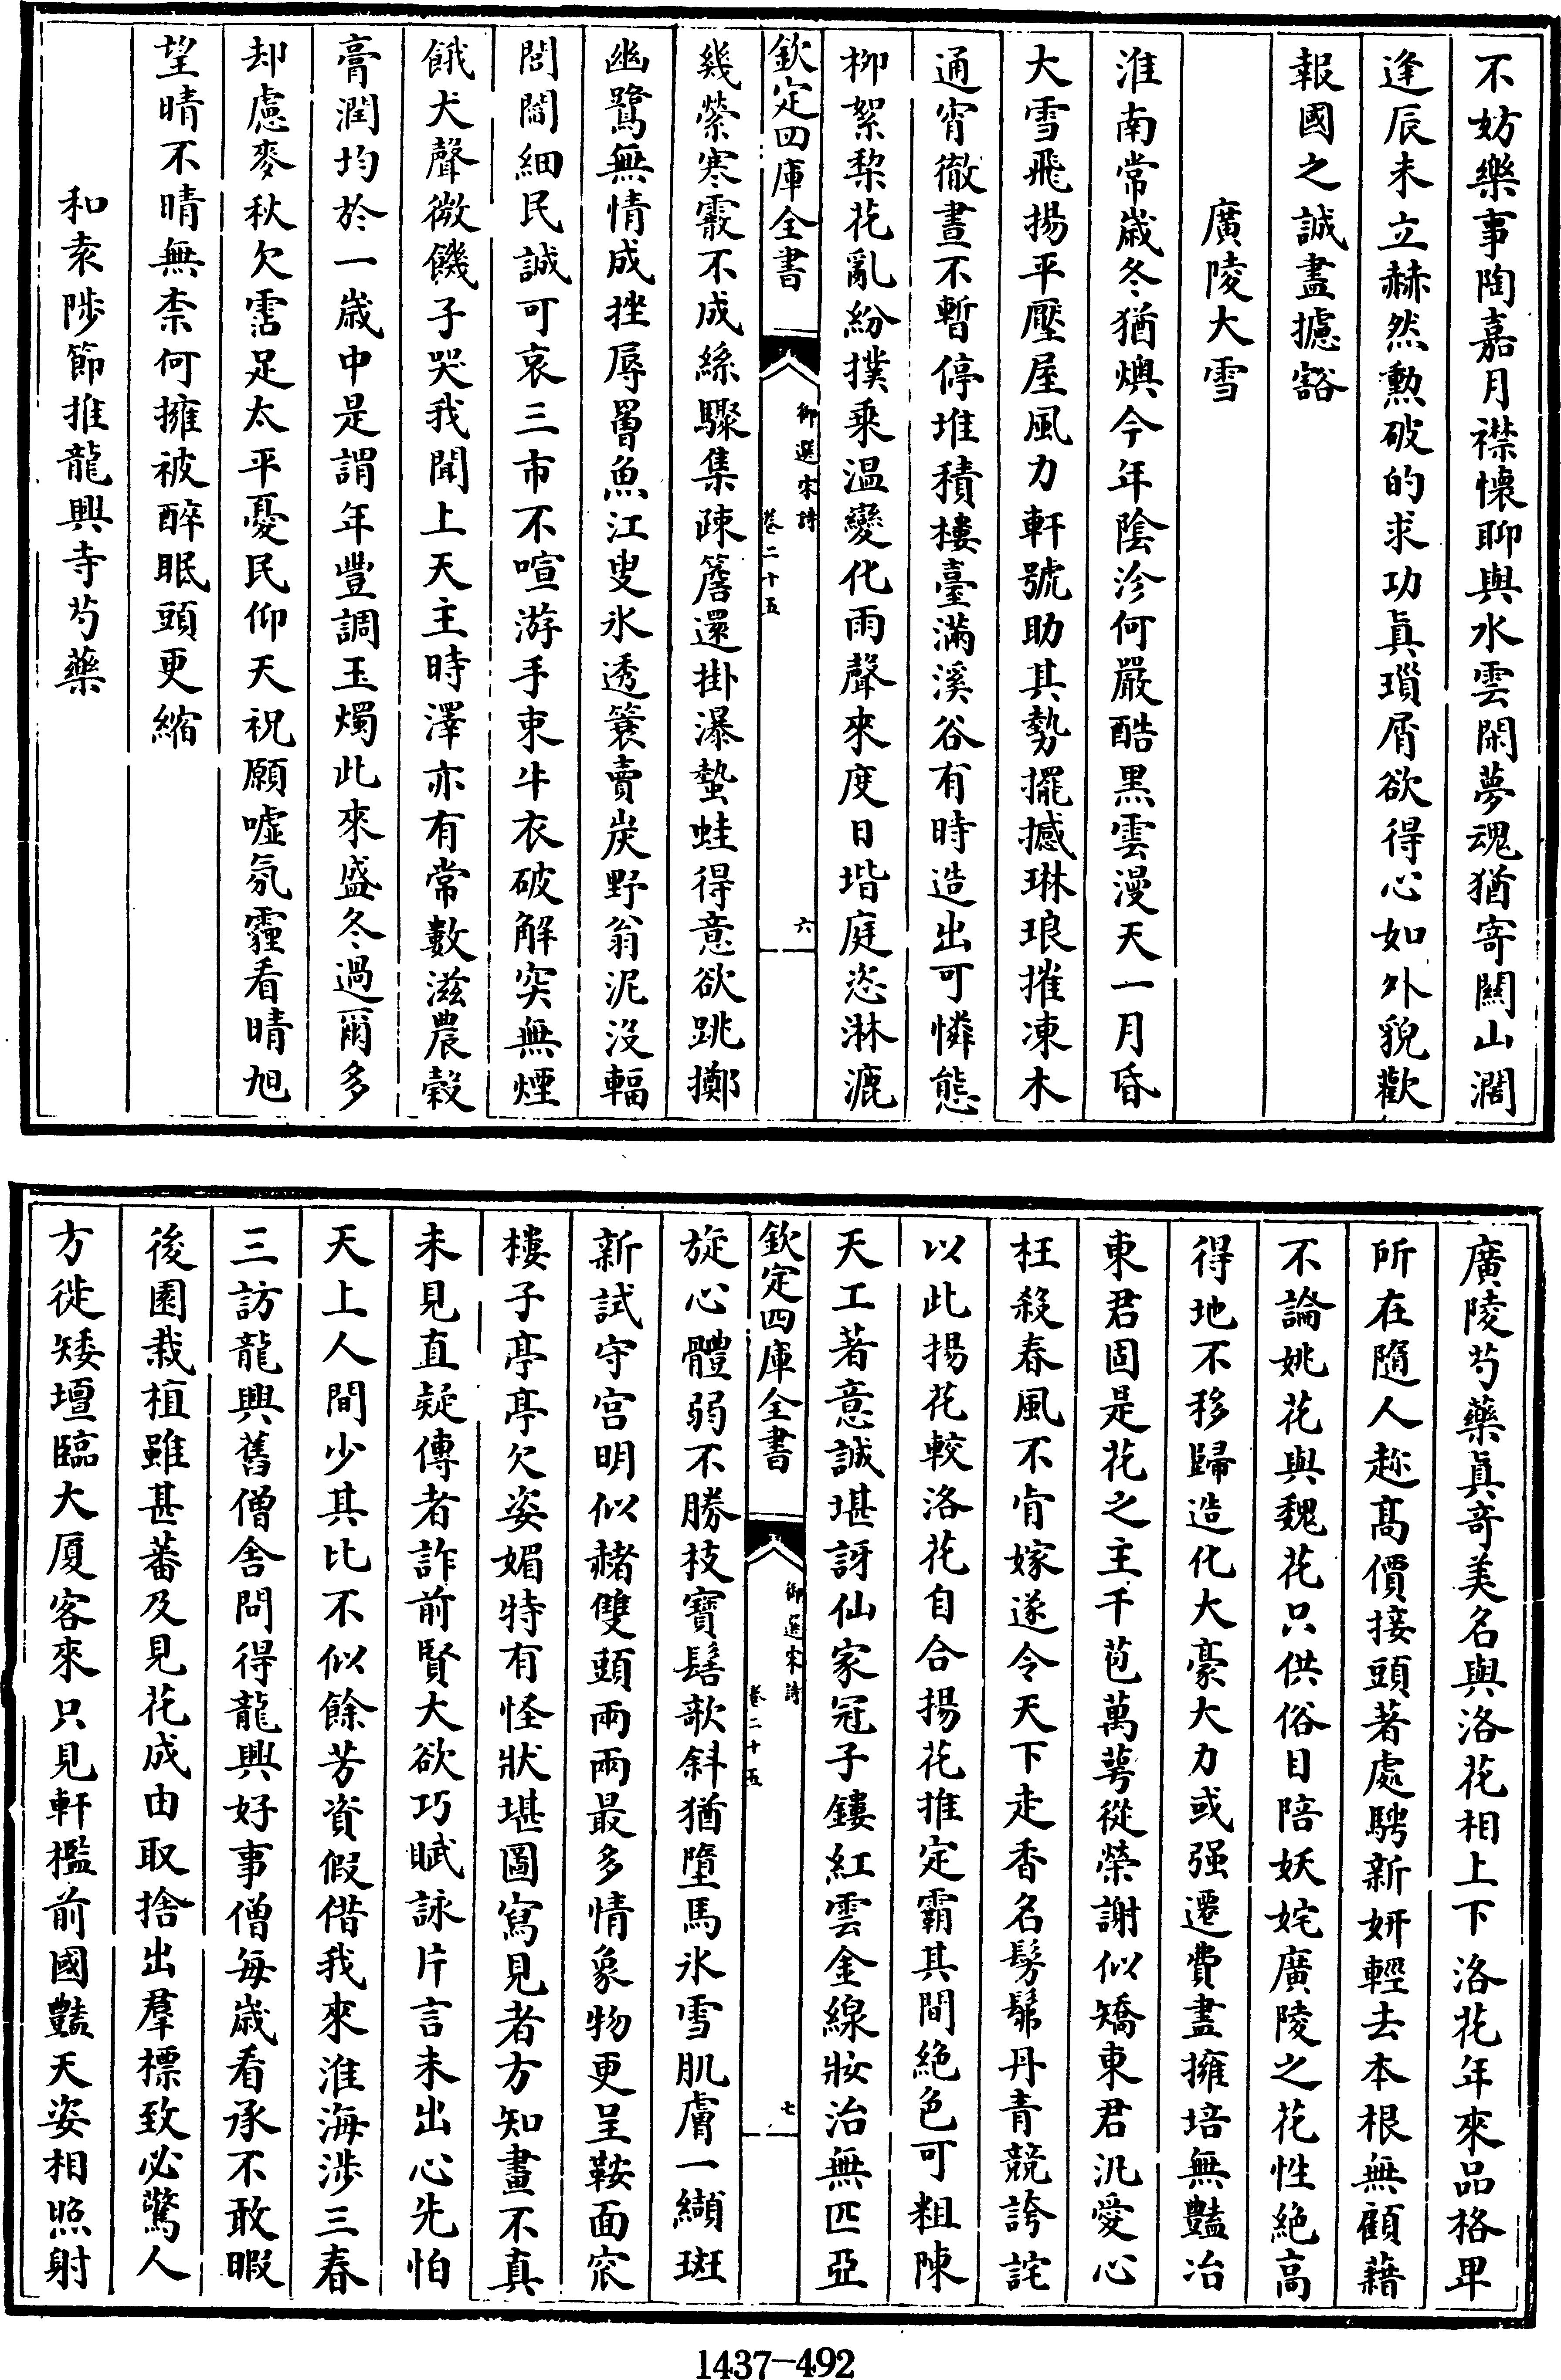 不妨樂事陶嘉月襟懷聊與水雲閑夢魂猶寄關山濶
逢辰未立赫然勲破的求功眞瑣屑欲得心如外貌歡
報國之誠盡攄豁
廣陵大雪
淮南常歲冬猶燠今年陰沴何嚴酷黑雲漫天一月昏
大雪飛揚平壓屋風力軒號助其勢擺撼琳琅摧凍木
通宵徹晝不暫停堆積樓臺滿溪谷有時造出可憐態
栁絮棃花亂紛撲乗温變化雨聲來度日堦庭恣淋漉
欽定四庫全書
御選宋詩
卷二十五
六
幾縈寒霰不成絲驟集疎簷還掛瀑蟄蛙得意欲跳擲
幽鷺無情成挫辱罾魚江叟氷透簑賣炭野翁泥沒輻
閭閻細民誠可哀三市不喧游手束牛衣破解突無煙
餓犬聲微饑子哭我聞上天主時澤亦有常數滋農榖
膏潤均於一歲中是謂年豐調玉燭此來盛冬過爾多
却慮麥秋欠霑足太平憂民仰天祝願嘘氛霾看晴旭
望晴不晴無柰何擁被醉眠頭更縮
和袁陟節推龍興寺芍藥
廣陵芍藥眞奇美名與洛花相上下洛花年來品格卑
所在隨人趂髙價接頭著處騁新妍輕去本根無顧藉
不論姚花與魏花只供俗目陪妖姹廣陵之花性絶高
得地不移歸造化大豪大力或强遷費盡擁培無豔冶
東君固是花之主千苞萬萼從榮謝似矯東君汎愛心
枉殺春風不肯嫁遂令天下走香名髣髴丹青競誇詫
以此揚花較洛花自合揚花推定霸其間絶色可粗陳
天工著意誠堪訝仙家冠子鏤紅雲金線妝治無匹亞
欽定四庫全書
御選宋詩
卷二十五
七
旋心體弱不勝枝寶髻欹斜猶墮馬氷雪肌膚一纈斑
新試守宫明似赭雙頭兩兩最多情象物更呈鞍面窊
樓子亭亭欠姿媚特有怪狀堪圖寫見者方知畫不真
未見直疑傳者詐前賢大欲巧賦詠片言未出心先怕
天上人間少其比不似餘芳資假借我來淮海涉三春
三訪龍興舊僧舍問得龍興好事僧每歲看承不敢暇
後園栽植雖甚蕃及見花成由取捨出羣標致必驚人
方徙矮壇臨大厦客來只見軒檻前國豔天姿相照射
1437-492